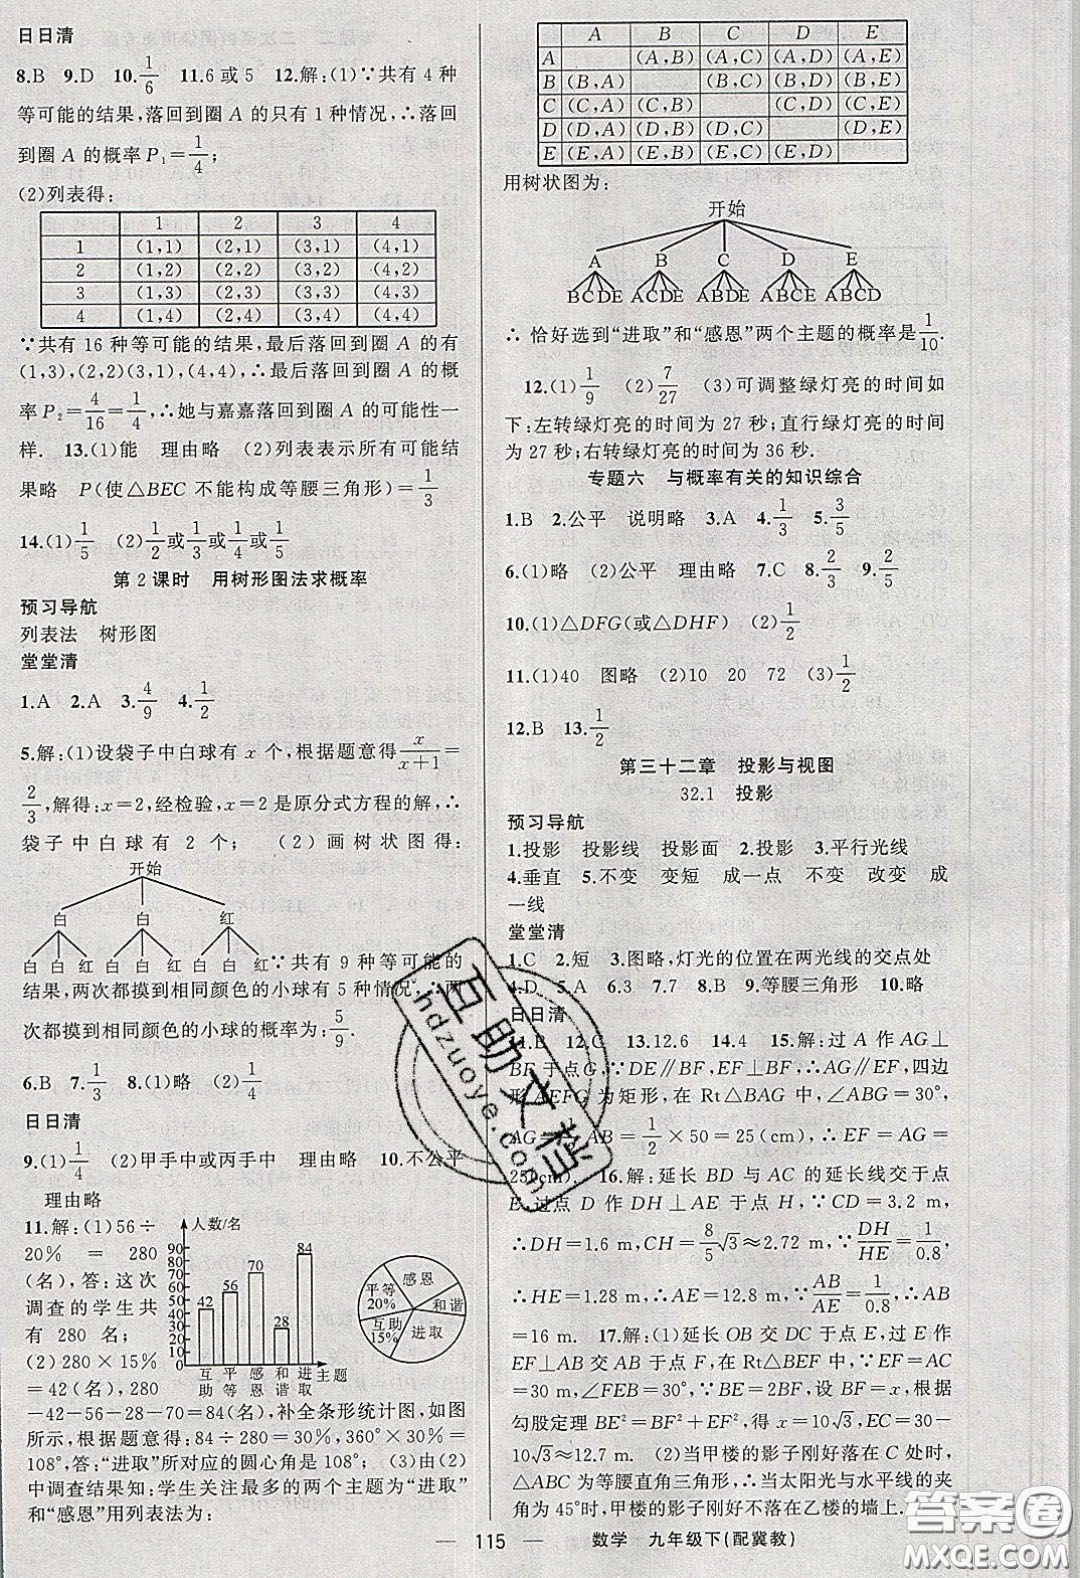 日日清
8.B 9.D 10.1/6 11.6或5 12.解:(1)∵共有4种
等可能的结果,落回到圈A的只有1种情况,∴落回
到圈A的概率P₁=1/4;
(2)列表得:
1 2 3 4
1 (1,1) (2,1) (3,1) (4,1)
2 (1,2) (2,2) (3,2) (4,2)
3 (1,3) (2,3) (3,3) (4,3)
4 (1,4) (2,4) (3,4) (4,4)
∵共有16种等可能的结果,最后落回到圈A的有
(1,3),(2,2)(3,1),(4,4),∴最后落回到圈A的概
率P₂=4/16=1/4,∴她与嘉嘉落回到圈A的可能性一
样. 13.(1)能 理由略 (2)列表表示所有可能结
果略 P(使△BEC不能构成等腰三角形)=1/3
14.(1)1/5 (2)1/2或1/3或1/4或1/5
第2课时 用树形图法求概率
预习导航
列表法 树形图
堂堂清
1.A 2.A 3.4/9 4.1/2
5.解:(1)设袋子中白球有x个,根据题意得x/(x+1)=
2/3,解得:x=2,经检验,x=2是原分式方程的解,∴
袋子中白球有2个;(2)画树状图得:
开始
白 白 红
白 白 红 白 白 红 白 白 红 ∵共有9种等可能的
结果,两次都摸到相同颜色的小球有5种情况,∴两
次都摸到相同颜色的小球的概率为:5/9.
6.B 7.1/3 8.(1)略 (2)1/4
日日清
9.(1)1/4 (2)甲手中或丙手中 理由略 10.不公平
理由略
11.解:(1)56÷
20%=280
(名),答:这次
调查的学生共
有280名;
(2)280×15%
=42(名),280
人数/名
90
80
70
60
50
40
30
20
10
0
42 56 70 28 84
互助 平等 感恩 和谐 进取 主题
感恩
平等 20%
和谐
互助 15%
进取
-42-56-28-70=84(名),补全条形统计图,如图
所示,根据题意得:84÷280=30%,360°×30%=
108°,答:“进取”所对应的圆心角是108°;(3)由(2)
中调查结果知:学生关注最多的两个主题为“进取”
和“感恩”用列表法为:
A B C D E
A (A,B) (A,C) (A,D) (A,E)
B (B,A) (B,C) (B,D) (B,E)
C (C,A) (C,B) (C,D) (C,E)
D (D,A) (D,B) (D,C) (D,E)
E (E,A) (E,B) (E,C) (E,D)
用树状图为:
开始
A B C D E
BCDE ACDE ABDE ABCE ABCD
∴恰好选到“进取”和“感恩”两个主题的概率是1/10.
12.(1)1/9 (2)7/27 (3)可调整绿灯亮的时间如
下:左转绿灯亮的时间为27秒;直行绿灯亮的时间
为27秒;右转绿灯亮的时间为36秒.
专题六 与概率有关的知识综合
1.B 2.公平 说明略 3.A 4.1/3 5.3/5
6.(1)略 (2)公平 理由略 7.C 8.2/3 9.2/5
10.(1)△DFG(或△DHF) (2)1/2
11.(1)40 图略 (2)10 20 72 (3)1/2
12.B 13.1/2
第三十二章 投影与视图
32.1 投影
预习导航
1.投影 投影线 投影面 2.投影 3.平行光线
4.垂直 5.不变 变短 成一点 不变 改变 成
一线
堂堂清
1.C 2.短 3.图略,灯光的位置在两光线的交点处
4.D 5.A 6.3 7.7 8.B 9.等腰三角形 10.略
日日清
11.B 12.C 13.12.6 14.4 15.解:过A作AG⊥
BF于点G,∵DE∥BF,EF⊥BF,∴AG∥EF,四边
形AEFG为矩形,在Rt△BAG中,∠ABG=30°,
∴AG=1/2AB=1/2×50=25(cm),∴EF=AG=
25(cm). 16.解:延长BD与AC的延长线交于点
E,过点D作DH⊥AE于点H,∵CD=3.2 m,
∴DH=1.6 m,CH=8/5√3≈2.72 m,∵DH/HE=1/0.8,
∴HE=1.28 m,∴AE=12.8 m,∵AB/AE=1/0.8,∴AB
=16 m. 17.解:(1)延长OB交DC于点E,则EF=
AC=30 m,∠FEB=30°,在Rt△BEF中,∵EF=AC
=30 m,∠FEB=30°,∴BE=2BF,设BF=x,根据
勾股定理BE²=BF²+EF²,得x=10√3,EC=30-
10√3≈12.7 m. (2)当甲楼的影子刚好落在C处时,
△ABC为等腰直角三角形,∴当太阳光与水平线的夹
角为45°时,甲楼的影子刚好不落在乙楼的墙上.
115 数学 九年级下(配冀教)
互助文档
hdzuoye.com
答案圈
MXQE.COM